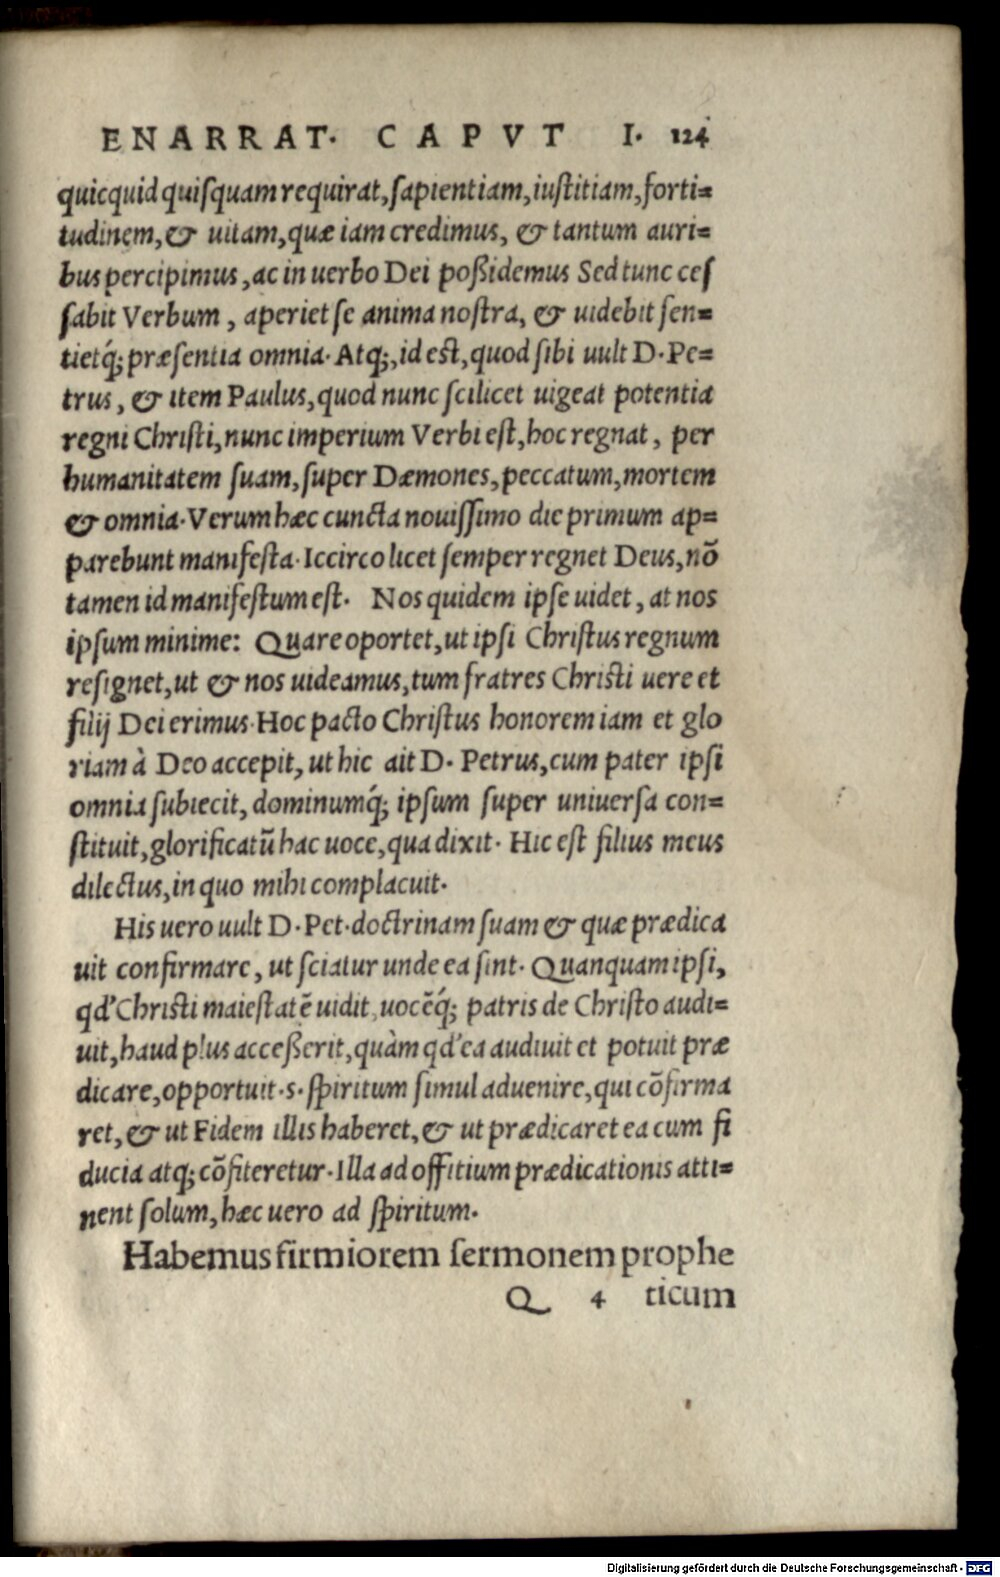 ENARRAT. CAPVT I. 124
quicquid quiſquam requirat, ſapientiam, iuſtitiam, forti=
tudinem, & uitam, quæ iam credimus, & tantum auri=
bus percipimus, ac in uerbo Dei poßidemus Sed tunc ceſ
ſabit Verbum, aperiet ſe anima noſtra, & uidebit ſen=
tietq́; præſentia omnia. Atq;, id eſt, quod ſibi uult D. Pe=
trus, & item Paulus, quod nunc ſcilicet uigeat potentia
regni Chriſti, nunc imperium Verbi eſt, hoc regnat, per
humanitatem ſuam, ſuper Dæmones, peccatum, mortem
& omnia. Verum hæc cuncta nouiſſimo die primum ap=
parebunt manifeſta. Iccirco licet ſemper regnet Deus, nō
tamen id manifeſtum eſt. Nos quidem ipſe uidet, at nos
ipſum minime: Quare oportet, ut ipſi Chriſtus regnum
reſignet, ut & nos uideamus, tum fratres Chriſti uere et
filij Dei erimus. Hoc pacto Chriſtus honorem iam et glo
riam à Deo accepit, ut hic ait D. Petrus, cum pater ipſi
omnia ſubiecit, dominumq́; ipſum ſuper uniuerſa con=
ſtituit, glorificatū hac uoce, qua dixit. Hic eſt filius meus
dilectus, in quo mihi complacuit.
His uero uult D. Pet. doctrinam ſuam & quæ prædica
uit confirmare, ut ſciatur unde ea ſint. Quanquam ipſi,
qd' Chriſti maieſtatē uidit, uocēq́; patris de Chriſto audi=
uit, haud plus acceßerit, quàm qd' ea audiuit et potuit præ
dicare, opportuit .s. ſpiritum ſimul aduenire, qui cōfirma
ret, & ut Fidem illis haberet, & ut prædicaret ea cum fi
ducia atq; cōfiteretur. Illa ad offitium prædicationis atti=
nent ſolum, hæc uero ad ſpiritum.
Habemus firmiorem ſermonem prophe
Q 4 ticum
Digitalisierung gefördert durch die Deutsche Forschungsgemeinschaft - DFG